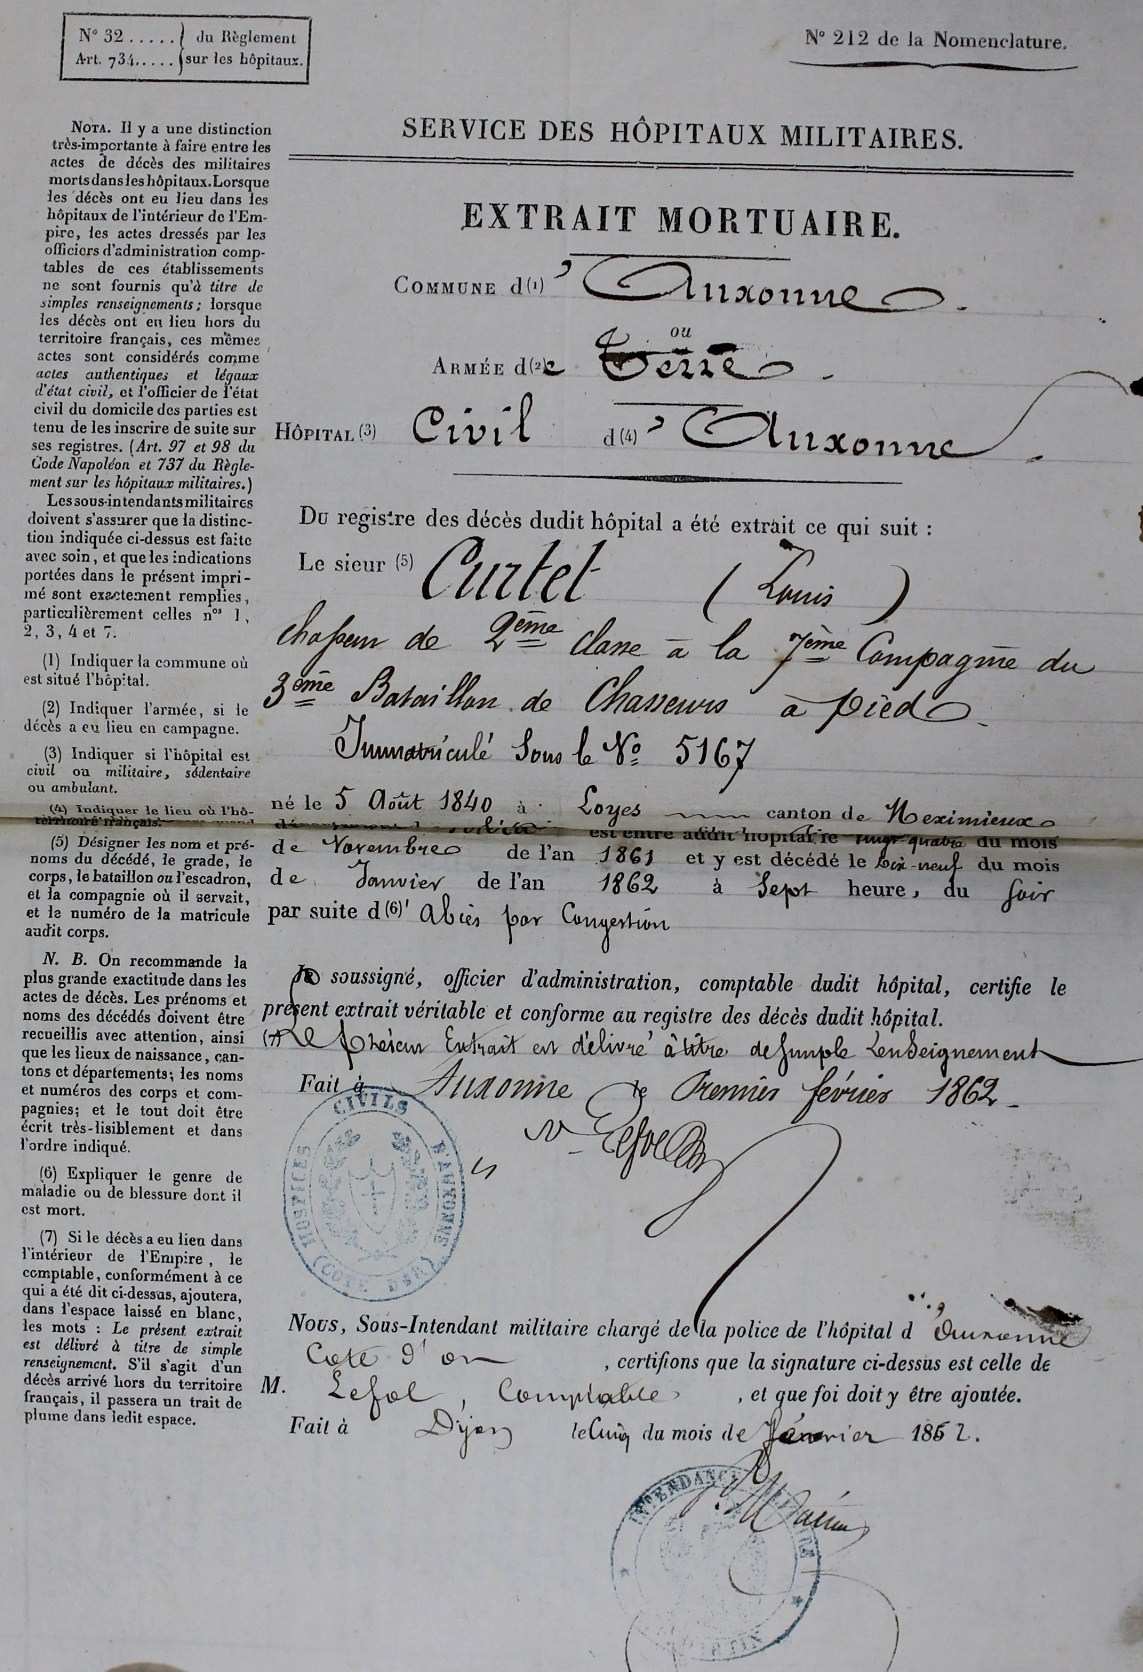 N° 32 ..... du Règlement
Art. 734..... sur les hôpitaux.
N° 212 de la Nomenclature.
SERVICE DES HÔPITAUX MILITAIRES.
EXTRAIT MORTUAIRE.
COMMUNE d(1)' Auxonne.
ou
ARMÉE d(2)e Terre.
HÔPITAL (3) Civil d(4)' Auxonne.
Du registre des décès dudit hôpital a été extrait ce qui suit :
Le sieur (5) Curtet (Louis)
chasseur de 2ème classe à la 7ème Compagnie du
3ème Bataillon de Chasseurs à pied.
Immatriculé sous le N° 5167
né le 5 Août 1840 à Loyes canton de Meximieux
est entré audit hôpital le vingt quatre du mois
de Novembre de l'an 1861 et y est décédé le dix-neuf du mois
de Janvier de l'an 1862 à Sept heure, du Soir
par suite d(6)' Abcès par Congestion
Je soussigné, officier d'administration, comptable dudit hôpital, certifie le
présent extrait véritable et conforme au registre des décès dudit hôpital.
(7) Le présent Extrait est délivré à titre de simple renseignement
Fait à Auxonne le Premier février 1862.
HOSPICES CIVILS D'AUXONNE
(COTE D'OR)
Nous, Sous-Intendant militaire chargé de la police de l'hôpital d'Auxonne
Cote d'or, certifions que la signature ci-dessus est celle de
M. Lefol, Comptable, et que foi doit y être ajoutée.
Fait à Dijon le Cinq du mois de février 1862.
INTENDANCE MILITAIRE
NOTA. Il y a une distinction
très-importante à faire entre les
actes de décès des militaires
morts dans les hôpitaux. Lorsque
les décès ont eu lieu dans les
hôpitaux de l'intérieur de l'Em-
pire, les actes dressés par les
officiers d'administration comp-
tables de ces établissements
ne sont fournis qu'à titre de
simples renseignements; lorsque
les décès ont eu lieu hors du
territoire français, ces mêmes
actes sont considérés comme
actes authentiques et légaux
d'état civil, et l'officier de l'état
civil du domicile des parties est
tenu de les inscrire de suite sur
ses registres. (Art. 97 et 98 du
Code Napoléon et 737 du Règle-
ment sur les hôpitaux militaires.)
Les sous-intendants militaires
doivent s'assurer que la distinc-
tion indiquée ci-dessus est faite
avec soin, et que les indications
portées dans le présent impri-
mé sont exactement remplies,
particulièrement celles nos 1,
2, 3, 4 et 7.
(1) Indiquer la commune où
est situé l'hôpital.
(2) Indiquer l'armée, si le
décès a eu lieu en campagne.
(3) Indiquer si l'hôpital est
civil ou militaire, sédentaire
ou ambulant.
(4) Indiquer le lieu où l'hô-
(5) Désigner les nom et pré-
noms du décédé, le grade, le
corps, le bataillon ou l'escadron,
et la compagnie où il servait,
et le numéro de la matricule
audit corps.
N. B. On recommande la
plus grande exactitude dans les
actes de décès. Les prénoms et
noms des décédés doivent être
recueillis avec attention, ainsi
que les lieux de naissance, can-
tons et départements; les noms
et numéros des corps et com-
pagnies; et le tout doit être
écrit très-lisiblement et dans
l'ordre indiqué.
(6) Expliquer le genre de
maladie ou de blessure dont il
est mort.
(7) Si le décès a eu lieu dans
l'intérieur de l'Empire, le
comptable, conformément à ce
qui a été dit ci-dessus, ajoutera,
dans l'espace laissé en blanc,
les mots : Le présent extrait
est délivré à titre de simple
renseignement. S'il s'agit d'un
décès arrivé hors du territoire
français, il passera un trait de
plume dans ledit espace.